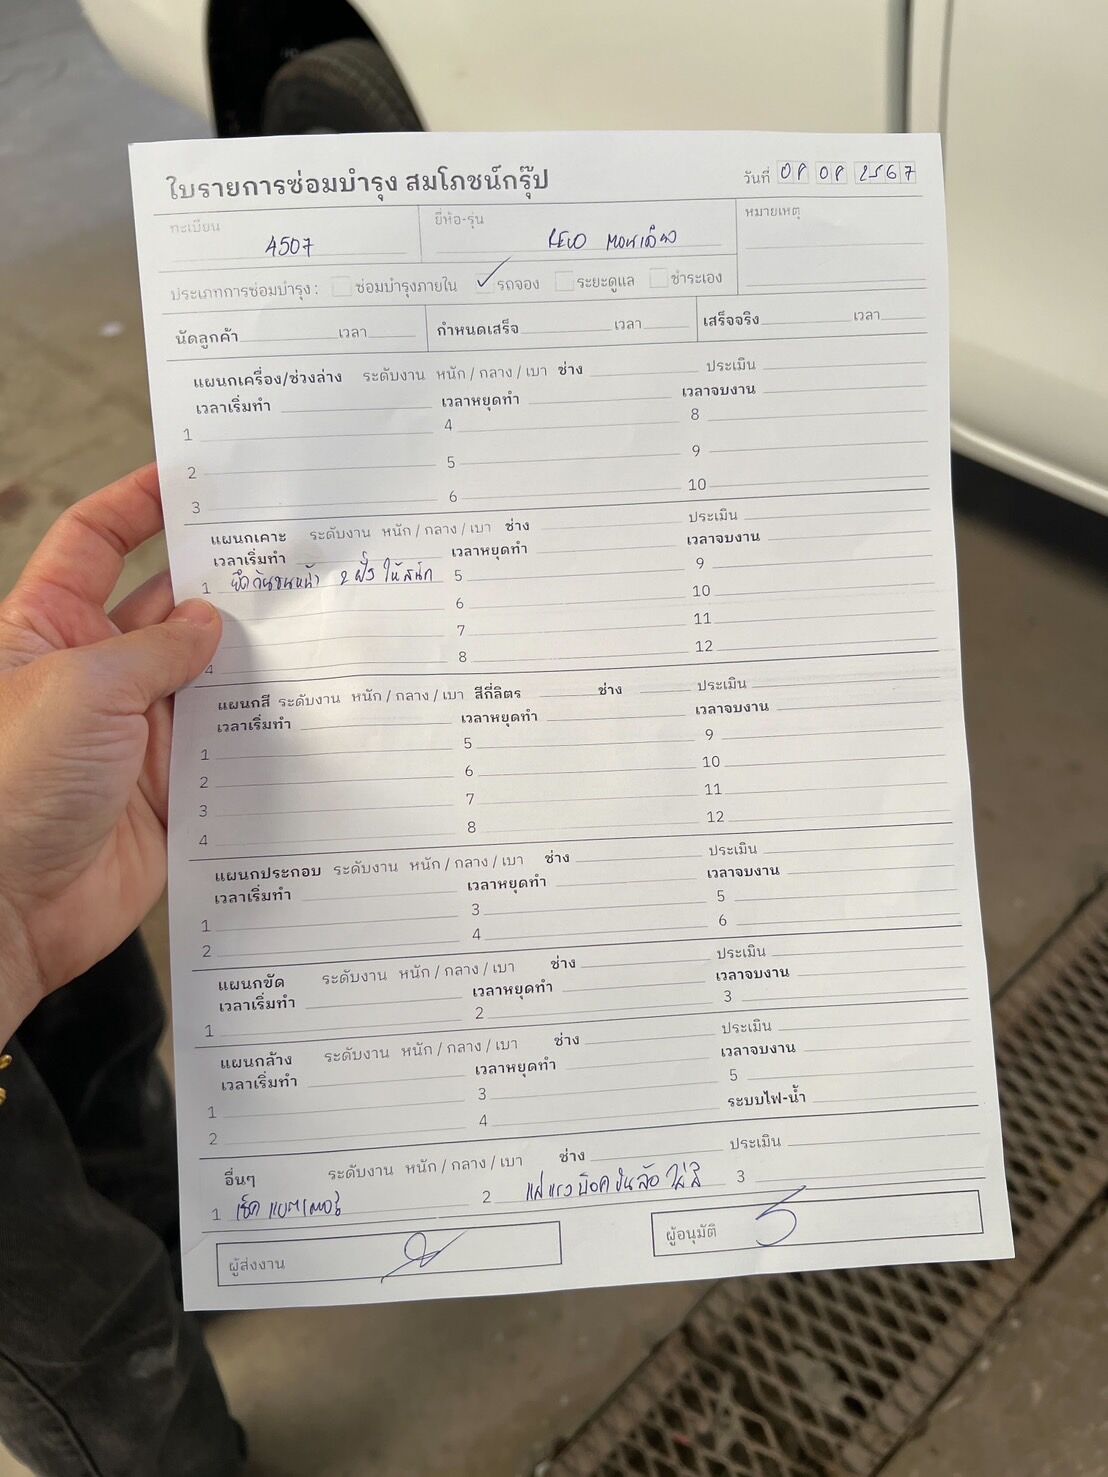 ใบรายการซ่อมบำรุง สมโภชน์กรุ๊ป
วันที่ 08 08 2567
ทะเบียน 4507
ยี่ห้อ-รุ่น REVO ตอนเดียว
หมายเหตุ
ประเภทการซ่อมบำรุง : ซ่อมบำรุงภายใน ✓ รถจอง ระยะดูแล ชำระเอง
นัดลูกค้า เวลา กำหนดเสร็จ เวลา เสร็จจริง เวลา
แผนกเครื่อง/ช่วงล่าง ระดับงาน หนัก / กลาง / เบา ช่าง ประเมิน
เวลาเริ่มทำ เวลาหยุดทำ เวลาจบงาน
1 4 8
2 5 9
3 6 10
แผนกเคาะ ระดับงาน หนัก / กลาง / เบา ช่าง ประเมิน
เวลาเริ่มทำ เวลาหยุดทำ เวลาจบงาน
1 ยึดกันชนหน้า 2 ฝั่ง ให้สนิท 5 9
6 10
7 11
4 8 12
แผนกสี ระดับงาน หนัก / กลาง / เบา สีกี่ลิตร ช่าง ประเมิน
เวลาเริ่มทำ เวลาหยุดทำ เวลาจบงาน
1 5 9
2 6 10
3 7 11
4 8 12
แผนกประกอบ ระดับงาน หนัก / กลาง / เบา ช่าง ประเมิน
เวลาเริ่มทำ เวลาหยุดทำ เวลาจบงาน
1 3 5
2 4 6
แผนกขัด ระดับงาน หนัก / กลาง / เบา ช่าง ประเมิน
เวลาเริ่มทำ เวลาหยุดทำ เวลาจบงาน
1 2 3
แผนกล้าง ระดับงาน หนัก / กลาง / เบา ช่าง ประเมิน
เวลาเริ่มทำ เวลาหยุดทำ เวลาจบงาน
1 3 5
2 4 ระบบไฟ-น้ำ
อื่นๆ ระดับงาน หนัก / กลาง / เบา ช่าง ประเมิน
1 เช็ค แบตเตอรี่ 2 แม่แรง บล็อค ขันล้อ ใส่สี 3
ผู้ส่งงาน
ผู้อนุมัติ